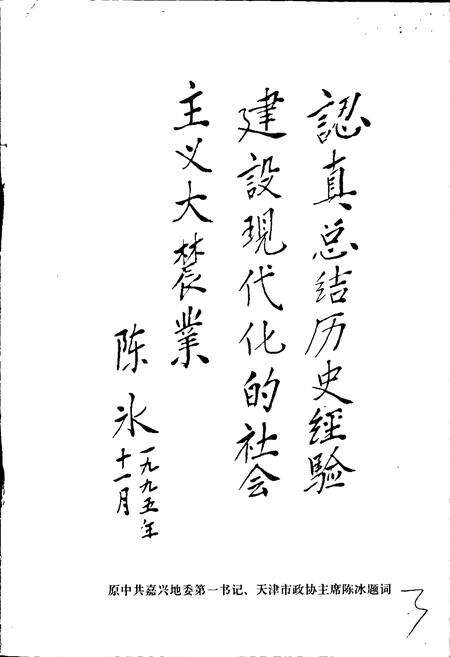 認真总结历史经验
建設現代化的社会
主义大農業
陈冰
一九九五年
十一月
原中共嘉兴地委第一书记、天津市政协主席陈冰题词
3